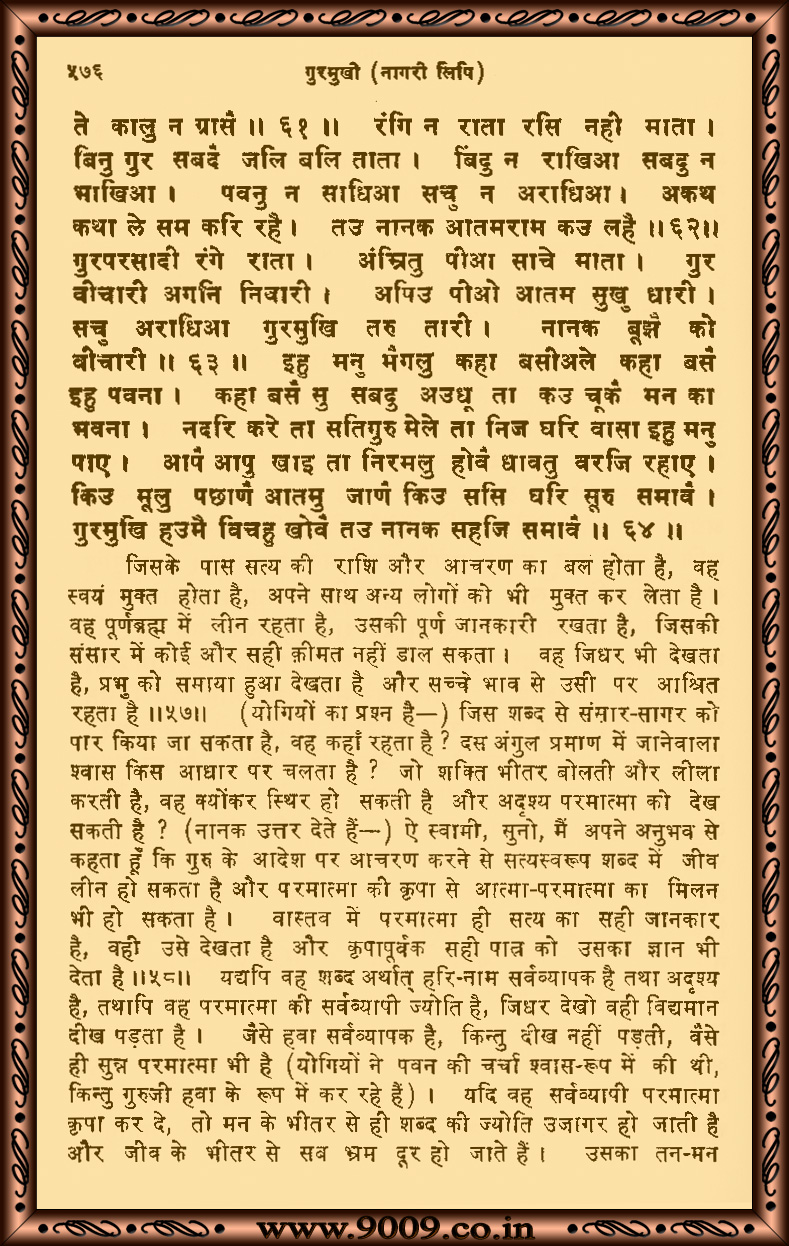 ५७६ गुरमुखी (नागरी लिपि)
ते कालु न ग्रासै ॥ ६१ ॥ रंगि न राता रसि नही माता ।
बिनु गुर सबदै जलि बलि ताता । बिंदु न राखिआ सबदु न
भाखिआ । पवनु न साधिआ सचु न अराधिआ । अकथ
कथा ले सम करि रहै । तउ नानक आतमराम कउ लहै ॥६२॥
गुरपरसादी रंगे राता । अंम्रितु पीआ साचे माता । गुर
वीचारी अगनि निवारी । अपिउ पीओ आतम सुखु धारी ।
सचु अराधिआ गुरमुखि तरु तारी । नानक बूझै को
वीचारी ॥ ६३ ॥ इहु मनु मैगलु कहा बसीअले कहा बसै
इहु पवना । कहा बसै सु सबदु अउधू ता कउ चूकै मन का
भवना । नदरि करे ता सतिगुरु मेले ता निज घरि वासा इहु मनु
पाए । आपै आपु खाइ ता निरमलु होवै धावतु वरजि रहाए ।
किउ मूलु पछाणै आतमु जाणै किउ ससि घरि सूरु समावै ।
गुरमुखि हउमै विचहु खोवै तउ नानक सहजि समावै ॥ ६४ ॥
जिसके पास सत्य की राशि और आचरण का बल होता है, वह
स्वयं मुक्त होता है, अपने साथ अन्य लोगों को भी मुक्त कर लेता है ।
वह पूर्णब्रह्म में लीन रहता है, उसकी पूर्ण जानकारी रखता है, जिसकी
संसार में कोई और सही क़ीमत नहीं डाल सकता । वह जिधर भी देखता
है, प्रभु को समाया हुआ देखता है और सच्चे भाव से उसी पर आश्रित
रहता है ॥५७॥ (योगियों का प्रश्न है—) जिस शब्द से संसार-सागर को
पार किया जा सकता है, वह कहाँ रहता है ? दस अंगुल प्रमाण में जानेवाला
श्वास किस आधार पर चलता है ? जो शक्ति भीतर बोलती और लीला
करती है, वह क्योंकर स्थिर हो सकती है और अदृश्य परमात्मा को देख
सकती है ? (नानक उत्तर देते हैं—) ऐ स्वामी, सुनो, मैं अपने अनुभव से
कहता हूँ कि गुरु के आदेश पर आचरण करने से सत्यस्वरूप शब्द में जीव
लीन हो सकता है और परमात्मा की कृपा से आत्मा-परमात्मा का मिलन
भी हो सकता है । वास्तव में परमात्मा ही सत्य का सही जानकार
है, वही उसे देखता है और कृपापूर्वक सही पात्र को उसका ज्ञान भी
देता है ॥५८॥ यद्यपि वह शब्द अर्थात् हरि-नाम सर्वव्यापक है तथा अदृश्य
है, तथापि वह परमात्मा की सर्वव्यापी ज्योति है, जिधर देखो वही विद्यमान
दीख पड़ता है । जैसे हवा सर्वव्यापक है, किन्तु दीख नहीं पड़ती, वैसे
ही सुन्न परमात्मा भी है (योगियों ने पवन की चर्चा श्वास-रूप में की थी,
किन्तु गुरुजी हवा के रूप में कर रहे हैं) । यदि वह सर्वव्यापी परमात्मा
कृपा कर दे, तो मन के भीतर से ही शब्द की ज्योति उजागर हो जाती है
और जीव के भीतर से सब भ्रम दूर हो जाते हैं । उसका तन-मन
www.9009.co.in